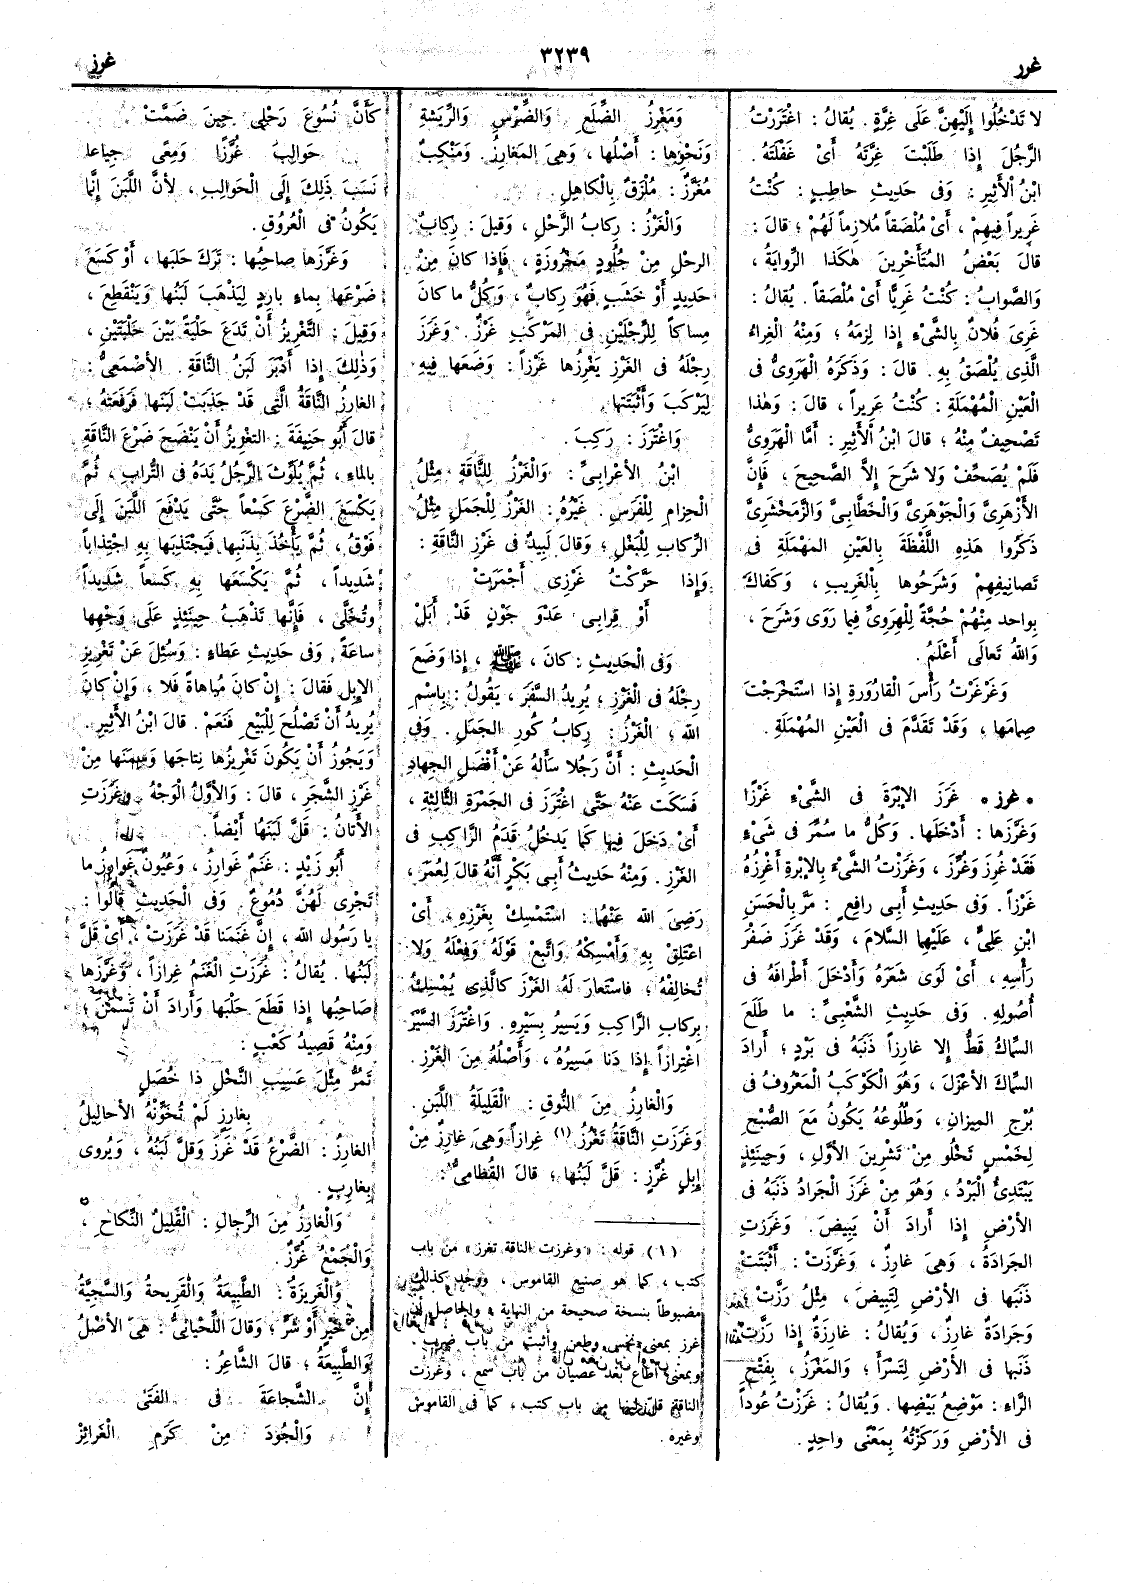 غرر
٣٢٣٩
غرز
لا تَدْخُلُوا إِلَيْهِنَّ عَلَى غِرَّةٍ. يُقالُ: اغْتَرَرْتُ
الرَّجُلَ إِذا طَلَبْتَ غِرَّتَهُ أَىْ غَفْلَتَهُ.
ابْنُ الْأَثِيرِ: وَفى حَدِيثِ حاطِبٍ: كُنْتُ
غَرِيراً فِيهِمْ، أَىْ مُلْصَقاً مُلازِماً لَهُمْ؛ قالَ:
قالَ بَعْضُ الْمُتَأَخِّرِينَ هٰكَذا الرِّوايَةُ،
وَالصَّوابُ: كُنْتُ غَرِيًّا أَىْ مُلْصَقاً. يُقالُ:
غَرِىَ فُلانٌ بِالشَّىْءِ إِذا لَزِمَهُ؛ وَمِنْهُ الْغِراءُ
الَّذِى يُلْصَقُ بِهِ. قالَ: وَذَكَرَهُ الْهَرَوِىُّ فى
الْعَيْنِ الْمُهْمَلَةِ: كُنْتُ عَرِيراً، قالَ: وَهٰذا
تَصْحِيفٌ مِنْهُ؛ قالَ ابْنُ الْأَثِيرِ: أَمَّا الْهَرَوِىُّ
فَلَمْ يُصَحِّفْ وَلا شَرَحَ إِلاَّ الصَّحِيحَ، فَإِنَّ
الْأَزْهَرِىَّ وَالْجَوْهَرِىَّ وَالْخَطَّابِىَّ وَالزَّمَخْشَرِىَّ
ذَكَرُوا هَذِهِ اللَّفْظَةَ بِالعَيْنِ المُهْمَلَةِ فى
تَصانِيفِهِمْ وَشَرَحُوها بِالْغَرِيبِ، وَكَفاكَ
بِواحِدٍ مِنْهُمْ حُجَّةً لِلْهَرَوِىِّ فِيما رَوَى وَشَرَحَ،
وَاللهُ تَعالَى أَعْلَمُ.
وَغَرْغَرْتُ رَأْسَ الْقارُورَةِ إِذا اسْتَخْرَجْتَ
صِمامَها، وَقَدْ تَقَدَّمَ فى الْعَيْنِ الْمُهْمَلَةِ.
* غرز * غَرَزَ الإِبْرَةَ فى الشَّىْءِ غَرْزًا
وَغَرَّزَها: أَدْخَلَها. وَكُلُّ ما سُمِّرَ فى شَىْءٍ
فَقَدْ غُرِزَ وَغُرِّزَ، وَغَرَزْتُ الشَّىْءَ بِالإِبْرَةِ أَغْرِزُهُ
غَرْزاً. وَفى حَدِيثِ أَبِى رافِعٍ: مَرَّ بِالْحَسَنِ
ابْنِ عَلِىٍّ، عَلَيْهِما السَّلامُ، وَقَدْ غَرَزَ ضَفْرَ
رَأْسِهِ، أَىْ لَوَى شَعَرَهُ وَأَدْخَلَ أَطْرافَهُ فى
أُصُولِهِ. وَفى حَدِيثِ الشَّعْبِىِّ: ما طَلَعَ
السِّماكُ قَطُّ إِلا غارِزاً ذَنَبَهُ فى بَرْدٍ؛ أَرادَ
السِّماكَ الأَعْزَلَ، وَهُوَ الْكَوْكَبُ الْمَعْرُوفُ فى
بُرْجِ المِيزانِ، وَطُلُوعُهُ يَكُونُ مَعَ الصُّبْحِ
لِخَمْسٍ تَخْلُو مِنْ تَشْرِينَ الأَوَّلِ، وَحِينَئِذٍ
يَبْتَدِئُ الْبَرْدُ، وَهُوَ مِنْ غَرَزَ الْجَرادُ ذَنَبَهُ فى
الأَرْضِ إِذا أَرادَ أَنْ يَبِيضَ. وَغَرَزَتِ
الجَرادَةُ، وَهِىَ غارِزٌ، وَغَرَّزَتْ: أَثْبَتَتْ
ذَنَبَها فى الأَرْضِ لِتَبِيضَ، مِثْلُ رَزَّتْ؛
وَجَرادَةٌ غارِزٌ، وَيُقالُ: غارِزَةٌ إِذا رَزَّتْ
ذَنَبَها فى الأَرْضِ لِتَسْرَأَ؛ وَالمَغْرَزُ، بِفَتْحِ
الرَّاءِ: مَوْضِعُ بَيْضِها. وَيُقالُ: غَرَزْتُ عُوداً
فى الأَرْضِ وَرَكَزْتُهُ بِمَعْنًى واحِدٍ.
وَمَغْرِزُ الضِّلَعِ وَالضِّرْسِ وَالرِّيشَةِ
وَنَحْوِها: أَصْلُها، وَهِىَ المَغارِزُ. وَمَنْكِبٌ
مُغَرَّزٌ: مُلْزَقٌ بِالْكاهِلِ.
وَالْغَرْزُ: رِكابُ الرَّحْلِ، وَقِيلَ: رِكابُ
الرحْلِ مِنْ جُلُودٍ مَخْرُوزَةٍ، فَإِذا كانَ مِنْ
حَدِيدٍ أَوْ خَشَبٍ فَهُوَ رِكابٌ، وَكُلُّ ما كانَ
مِساكاً لِلرِّجْلَيْنِ فى المَرْكَبِ غَرْزٌ. وَغَرَزَ
رِجْلَهُ فى الغَرْزِ يَغْرِزُها غَرْزاً: وَضَعَها فِيهِ
لِيَرْكَبَ وَأَثْبَتَها.
وَاغْتَرَزَ: رَكِبَ.
ابْنُ الأَعْرابِىِّ: وَالْغَرْزُ لِلنَّاقَةِ مِثْلُ
الْحِزامِ لِلْفَرَسِ. غَيْرُهُ: الغَرْزُ لِلْجَمَلِ مِثْلُ
الرِّكابِ لِلْبَغْلِ؛ وَقالَ لَبِيدٌ فى غَرْزِ النَّاقَةِ:
وَإِذا حَرَّكْتُ غَرْزِى أَجْمَرَتْ
أَوْ قِرابِى عَدْوَ جَوْنٍ قَدْ أَبَلْ
وَفى الْحَدِيثِ: كانَ، ﷺ، إِذا وَضَعَ
رِجْلَهُ فى الْغَرْزِ، يُرِيدُ السَّفَرَ، يَقُولُ: بِاسْمِ
الله؛ الْغَرْزُ: رِكابُ كُورِ الجَمَلِ. وَفى
الْحَدِيثِ: أَنَّ رَجُلا سَأَلَهُ عَنْ أَفْضَلِ الجِهادِ
فَسَكَتَ عَنْهُ حَتَّى اغْتَرَزَ فى الجَمْرَةِ الثَّالِثَةِ،
أَىْ دَخَلَ فِيها كَما يَدخُلُ قَدَمُ الرَّاكِبِ فى
الغَرْزِ. وَمِنْهُ حَدِيثُ أَبِى بَكْرٍ أَنَّهُ قالَ لِعُمَرَ،
رَضِىَ الله عَنْهُما: اسْتَمْسِكْ بِغَرْزِهِ، أَىْ
اعْتَلِقْ بِهِ وَأَمْسِكْهُ وَاتَّبِعْ قَوْلَهُ وَفِعْلَهُ وَلا
تُخالِفْهُ؛ فاسْتَعارَ لَهُ الغَرْزَ كالَّذِى يُمْسِكُ
بِرِكابِ الرَّاكِبِ وَيَسِيرُ بِسَيْرِهِ. وَاغْتَرَزَ السَّيْرَ
اغْتِرازاً إِذا دَنا مَسِيرُهُ، وَأَصْلُهُ مِنَ الْغَرْزِ.
وَالْغارِزُ مِنَ النُّوقِ: الْقَلِيلَةُ اللَّبَنِ.
وَغَرَزَتِ النَّاقَةُ تَغْرُزُ (١) غِرازاً وَهِىَ غارِزٌ مِنْ
إِبِلٍ غُرَّزٍ: قَلَّ لَبَنُها؛ قالَ القُطامِىُّ:
(١) قوله: «وغرزت الناقة تغرز» من باب
كتب، كما هو صنيع القاموس، ووجد كذلك
مضبوطاً بنسخة صحيحة من النهاية. والحاصل أن
غرز بمعنى نخس وطعن وأثبت من باب ضرب.
وبمعنى أطاع بعد عصيان من باب سمع، وغرزت
الناقة قل لبنها من باب كتب، كما فى القاموش
وغيره.
كَأَنَّ نُسُوعَ رَحْلِى حِينَ ضَمَّتْ
حَوالِبَ غُرَّزًا وَمِعًى جِياعا
نَسَبَ ذَلِكَ إِلَى الْحَوالِبِ، لأَنَّ اللَّبَنَ إِنَّما
يَكُونُ فى الْعُرُوقِ.
وَغَرَّزَها صاحِبُها: تَرَكَ حَلْبَها، أَوْ كَسَعَ
ضَرْعَها بِماءٍ بارِدٍ لِيَذْهَبَ لَبَنُها وَيَنْقَطِعَ،
وَقِيلَ: التَّغْرِيزُ أَنْ تَدَعَ حَلْبَةً بَيْنَ حَلْبَتَيْنِ،
وَذٰلِكَ إِذا أَدْبَرَ لَبَنُ النَّاقَةِ. الأَصْمَعِىُّ:
الغارِزُ النَّاقَةُ الَّتِى قَدْ جَذَبَتْ لَبَنَها فَرَفَعَتْهُ؛
قالَ أَبُو حَنِيفَةَ: التغْرِيزُ أَنْ يَنْضَحَ ضَرْعَ النَّاقَةِ
بِالماءِ، ثُمَّ يُلَوِّثَ الرَّجُلُ يَدَهُ فى التُّرابِ، ثُمَّ
يَكْسَعَ الضَّرْعَ كَسْعاً حَتَّى يَدْفَعَ اللَّبَنَ إِلَى
فَوْقُ، ثُمَّ يَأْخُذَ بِذَنَبِها فَيَجْتَذِبَها بِهِ اجْتِذاباً
شَدِيداً، ثُمَّ يَكْسَعَها بِهِ كَسْعاً شَدِيداً
وَتُخَلَّى، فَإِنَّها تَذْهَبُ حِينَئِذٍ عَلَى وَجْهِها
ساعَةً. وَفى حَدِيثِ عَطاءٍ: وَسُئِلَ عَنْ تَغْرِيزِ
الإِبِلِ فَقالَ: إِنْ كانَ مُباهاةً فَلا، وَإِنْ كانَ
يُرِيدُ أَنْ تَصْلُحَ لِلْبَيْعِ فَنَعَمْ. قالَ ابْنُ الأَثِيرِ:
وَيَجُوزُ أَنْ يَكُونَ تَغْرِيزُها نِتاجَها وَسِمَنَها مِنْ
غَرْزِ الشَّجَرِ، قالَ: وَالأَوَّلُ الْوَجْهُ. وَغَرَزَتِ
الأَتانُ: قَلَّ لَبَنُها أَيْضاً.
أَبُو زَيْدٍ: غَنَمٌ غَوارِزُ، وَعُيُونٌ غَوارِزُ ما
تَجْرِى لَهُنَّ دُمُوعٌ. وَفى الْحَدِيثِ قالُوا:
يا رَسُولَ الله، إِنَّ غَنَمَنا قَدْ غَرَزَتْ، أَىْ قَلَّ
لَبَنُها. يُقالُ: غَرَزَتِ الْغَنَمُ غِرازاً، وَغَرَّزَها
صَاحِبُها إِذا قَطَعَ حَلْبَها وَأَرادَ أَنْ تَسْمَنَ؛
وَمِنْهُ قَصِيدُ كَعْبٍ:
تَمُرُّ مِثْلَ عَسِيبِ النَّخْلِ ذا خُصَلٍ
بِغارِزٍ لَمْ تُخَوِّنْهُ الأَحالِيلُ
الغارِزُ: الضَّرْعُ قَدْ غَرَزَ وَقَلَّ لَبَنُهُ، وَيُروى
بِغارِبٍ.
وَالْغارِزُ مِنَ الرِّجالِ: الْقَلِيلُ النِّكاحِ،
وَالْجَمْعُ غُرَّزٌ.
وَالْغَرِيزَةُ: الطَّبِيعَةُ وَالْقَرِيحَةُ وَالسَّجِيَّةُ
مِنْ خَيْرٍ أَوْ شَرٍّ؛ وَقالَ اللِّحْيانِىُّ: هِىَ الأَصْلُ
وَالطَّبِيعَةُ؛ قالَ الشَّاعِرُ:
إِنَّ الشَّجاعَةَ فى الفَتَى
وَالْجُودَ مِنْ كَرَمِ الْغَرائِزْ